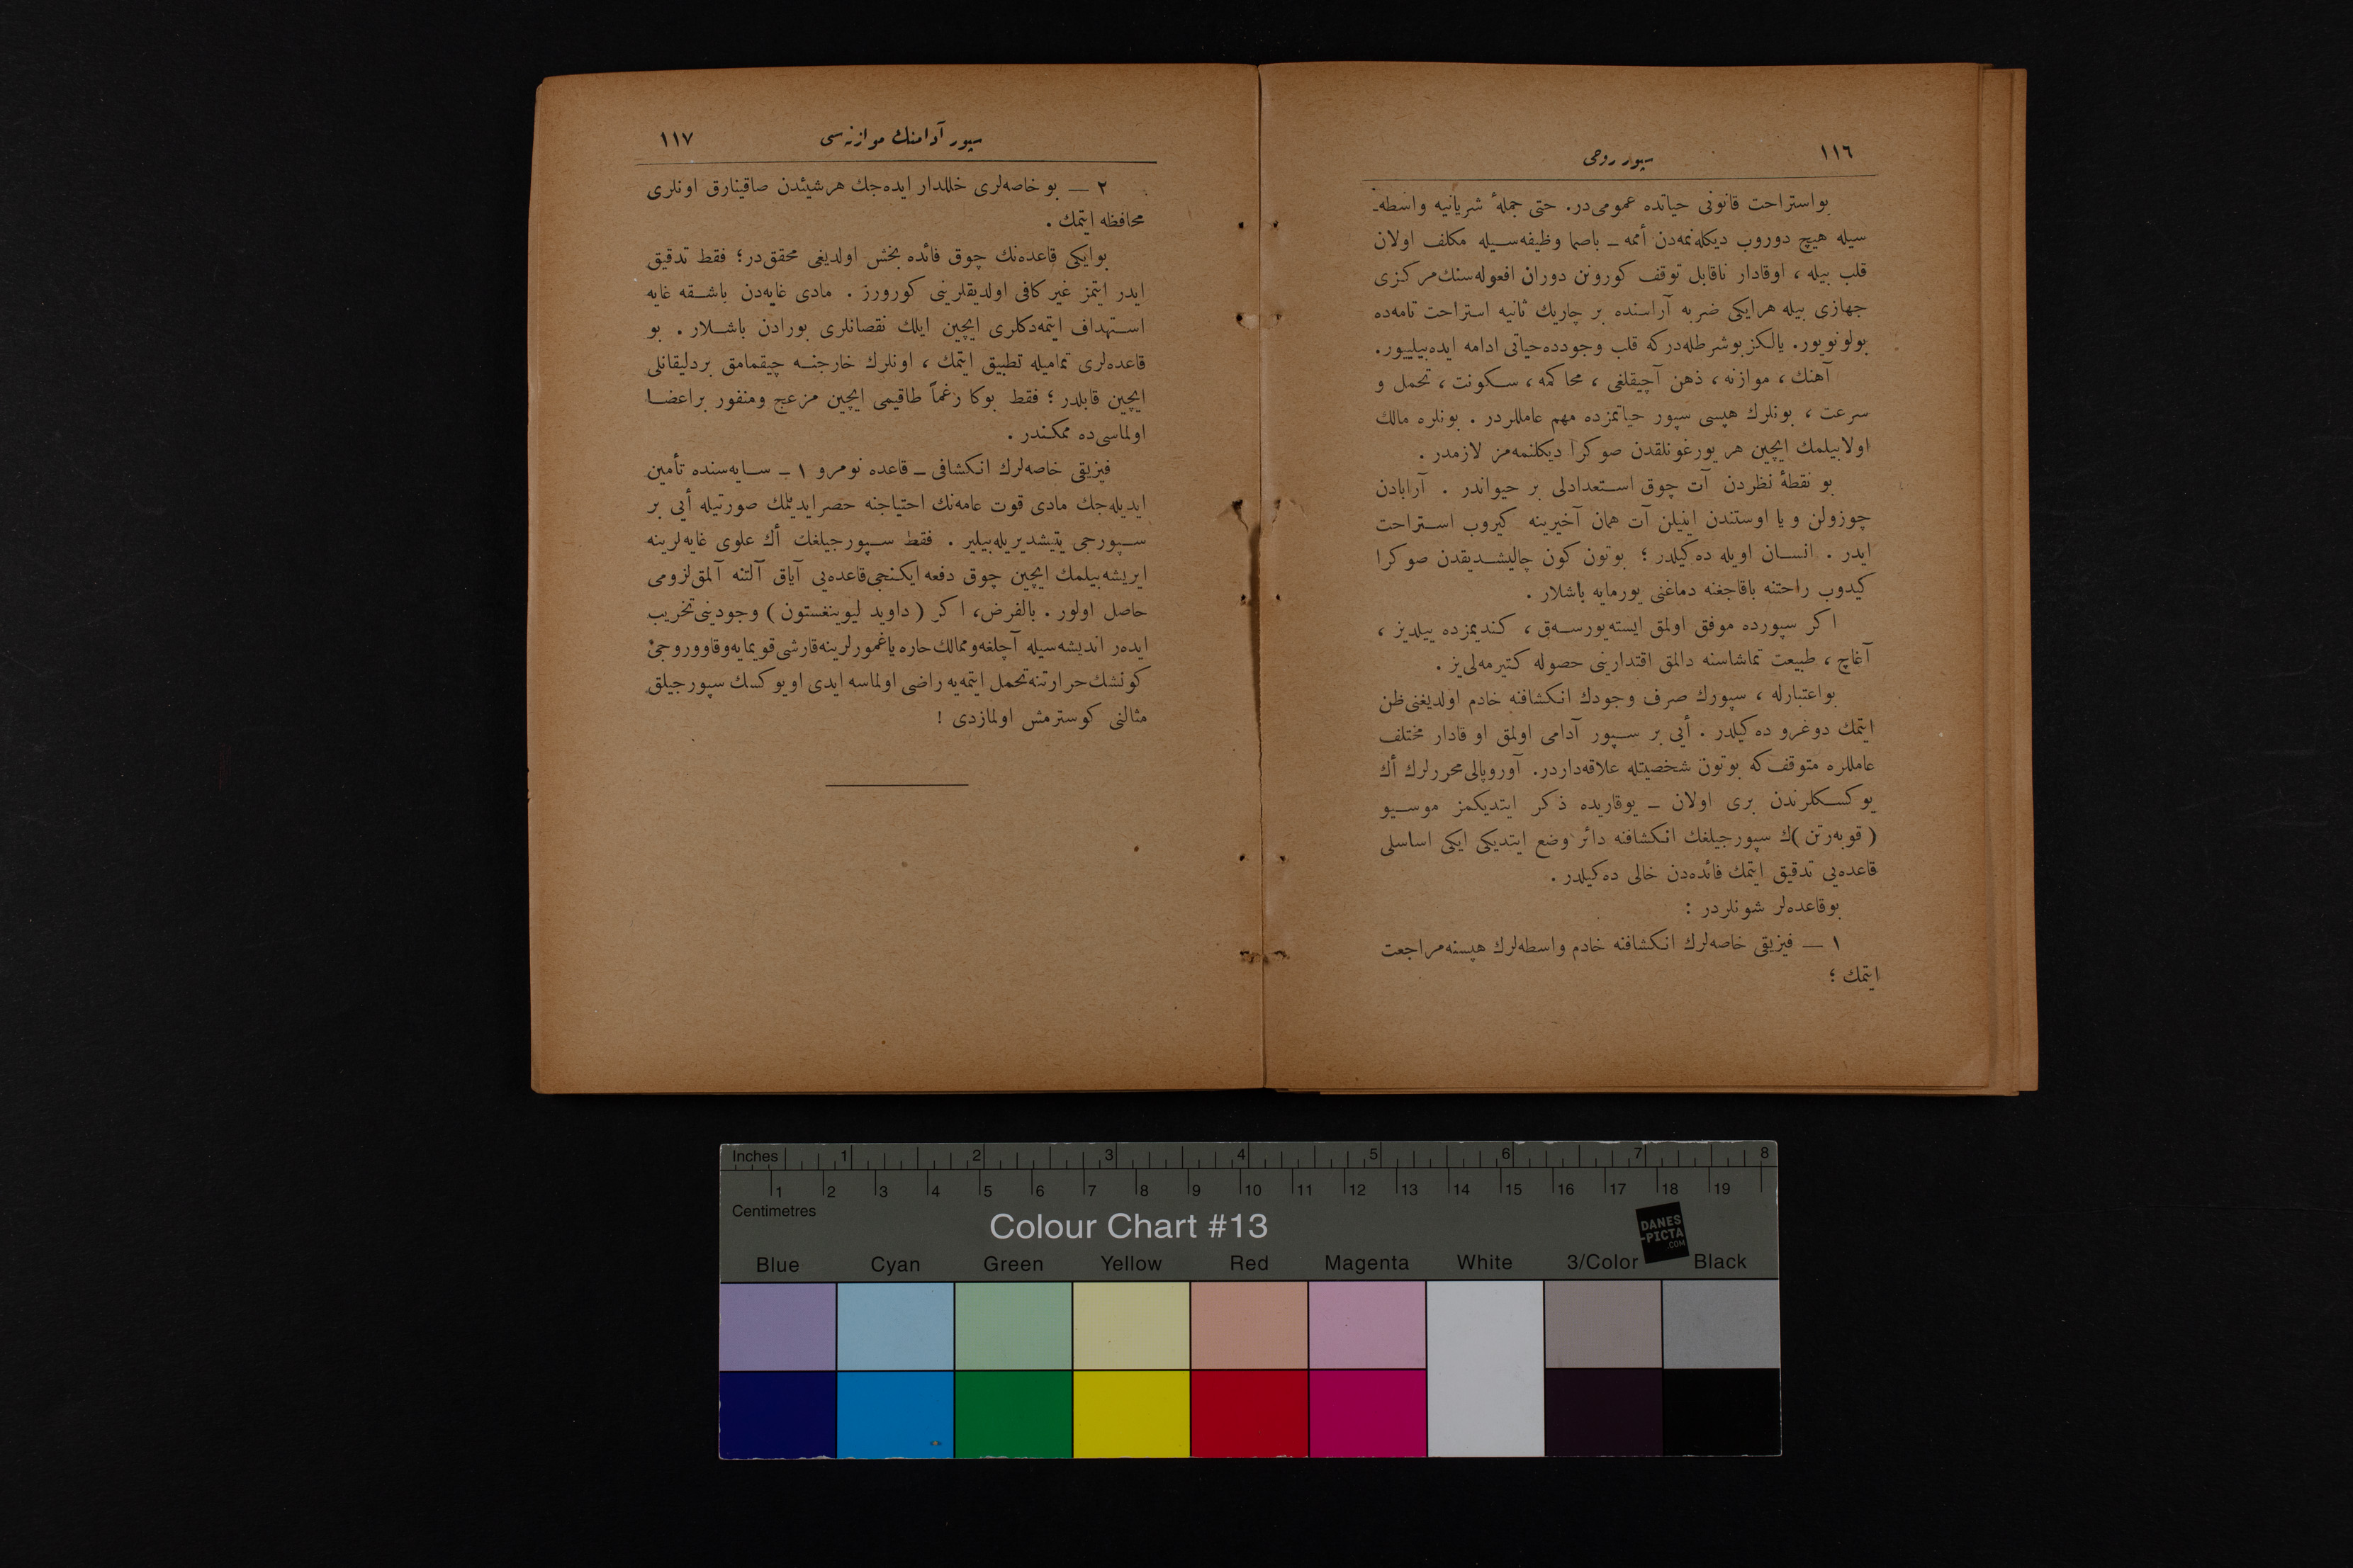 ١١٦
سپور روحی
بواستراحت قانونی حیاتده عمومی‌در. حتی جملهٔ شریانیه واسطه‌ـ
سیله هیچ دوروب دیکله‌نمه‌دن أممه ـ باصما وظیفه‌سیله مکلف اولان
قلب بیله ، اوقادار ناقابل توقف کورونن دوران افعوله‌سنك مرکزی
جهازی بیله هرایکی ضربه آراسنده بر چاریك ثانیه استراحت تامه‌ده
بولونویور. یالکز بوشرطله‌درکه قلب وجودده‌حیاتی ادامه ایده‌بیلییور.
آهنك ، موازنه ، ذهن آچیقلغی ، محاکمه ، سکونت ، تحمل و
سرعت ، بونلرك هپسی سپور حیاتمزده مهم عاملاردر . بونلره مالك
اولابیلمك ایچین هر یورغونلقدن صوکرا دیکلنمه‌مز لازمدر .
بو نقطهٔ نظردن آت چوق استعدادلی بر حیواندر . آرابادن
چوزولن و یا اوستندن اینیلن آت همان آخیرینه کیروب استراحت
ایدر . انسان اویله ده‌کیلدر ؛ بوتون کون چالیشدیقدن صوکرا
کیدوب راحتنه باقاجغنه دماغنی یورمایه باشلار .
اکر سپورده موفق اولمق ایسته‌یورسه‌ق ، کندیمزده ییلدیز ،
آغاچ ، طبیعت تماشاسنه دالمق اقتدارینی حصوله کتیرمه‌لی‌یز .
بواعتبارله ، سپورك صرف وجودك انکشافنه خادم اولدیغنی‌ظن
ایتمك دوغرو ده‌کیلدر . أیی بر سپور آدامی اولمق او قادار مختلف
عامللره متوقف‌که بوتون شخصیتله علاقه‌داردر. آوروپالی‌محررلرك أك
یوکسکلرندن بری اولان ـ یوقاریده ذکر ایتدیکمز موسیو
( قوبه‌رتن )ك سپورجیلغك انکشافنه دائر وضع ایتدیکی ایکی اساسلی
قاعده‌یی تدقیق ایتمك فائده‌دن خالی ده‌کیلدر .
بوقاعده‌لر شونلردر :
١ — فیزیقی خاصه‌لرك انکشافنه خادم واسطه‌لرك هپسنه‌مراجعت
ایتمك ؛
سپور آدامنك موازنه‌سی
١١٧
٢ — بو خاصه‌لری خللدار ایده‌جك هرشیئدن صاقینارق اونلری
محافظه ایتمك .
بوایکی قاعده‌نك چوق فائده بخش اولدیغی محقق‌در؛ فقط تدقیق
ایدر ایتمز غیر کافی اولدیقلرینی کورورز . مادی غایه‌دن باشقه غایه
استهداف ایتمه‌دکلری ایچین ایلك نقصانلری بورادن باشلار . بو
قاعده‌لری تمامیله تطبیق ایتمك ، اونلرك خارجنه چیقمامق بردلیقانلی
ایچین قابلدر ؛ فقط بوکا رغماً طاقیمی ایچین مزعج ومنفور براعضا
اولماسی‌ده ممکندر .
فیزیقی خاصه‌لرك انکشافی ـ قاعده نومرو ١ ـ سایه‌سنده تأمین
ایدیله‌جك مادی قوت عامه‌نك احتیاجنه حصرایدیلمك صورتیله أیی بر
سپورجی یتیشدیریله‌بیلیر . فقط سپورجیلغك أك علوی غایه‌لرینه
ایریشه‌بیلمك ایچین چوق دفعه ایکنجی‌قاعده‌یی آیاق آلتنه آلمق‌لزومی
حاصل اولور . بالفرض، اکر ( داوید لیوینغستون ) وجودینی‌تخریب
ایده‌ر اندیشه‌سیله آچلغه‌وممالك‌حاره یاغمورلرینه‌قارشی‌قویمایه‌وقاووروجی
کونشك‌حرارتنه‌تحمل ایتمه‌یه راضی اولماسه ایدی اویوکسك سپورجیلق
مثالنی کوسترمش اولمازدی !
Inches 1 2 3 4 5 6 7 8
1 2 3 4 5 6 7 8 9 10 11 12 13 14 15 16 17 18 19
Centimetres
Colour Chart #13
DANES
-PICTA
.COM
Blue Cyan Green Yellow Red Magenta White 3/Color Black